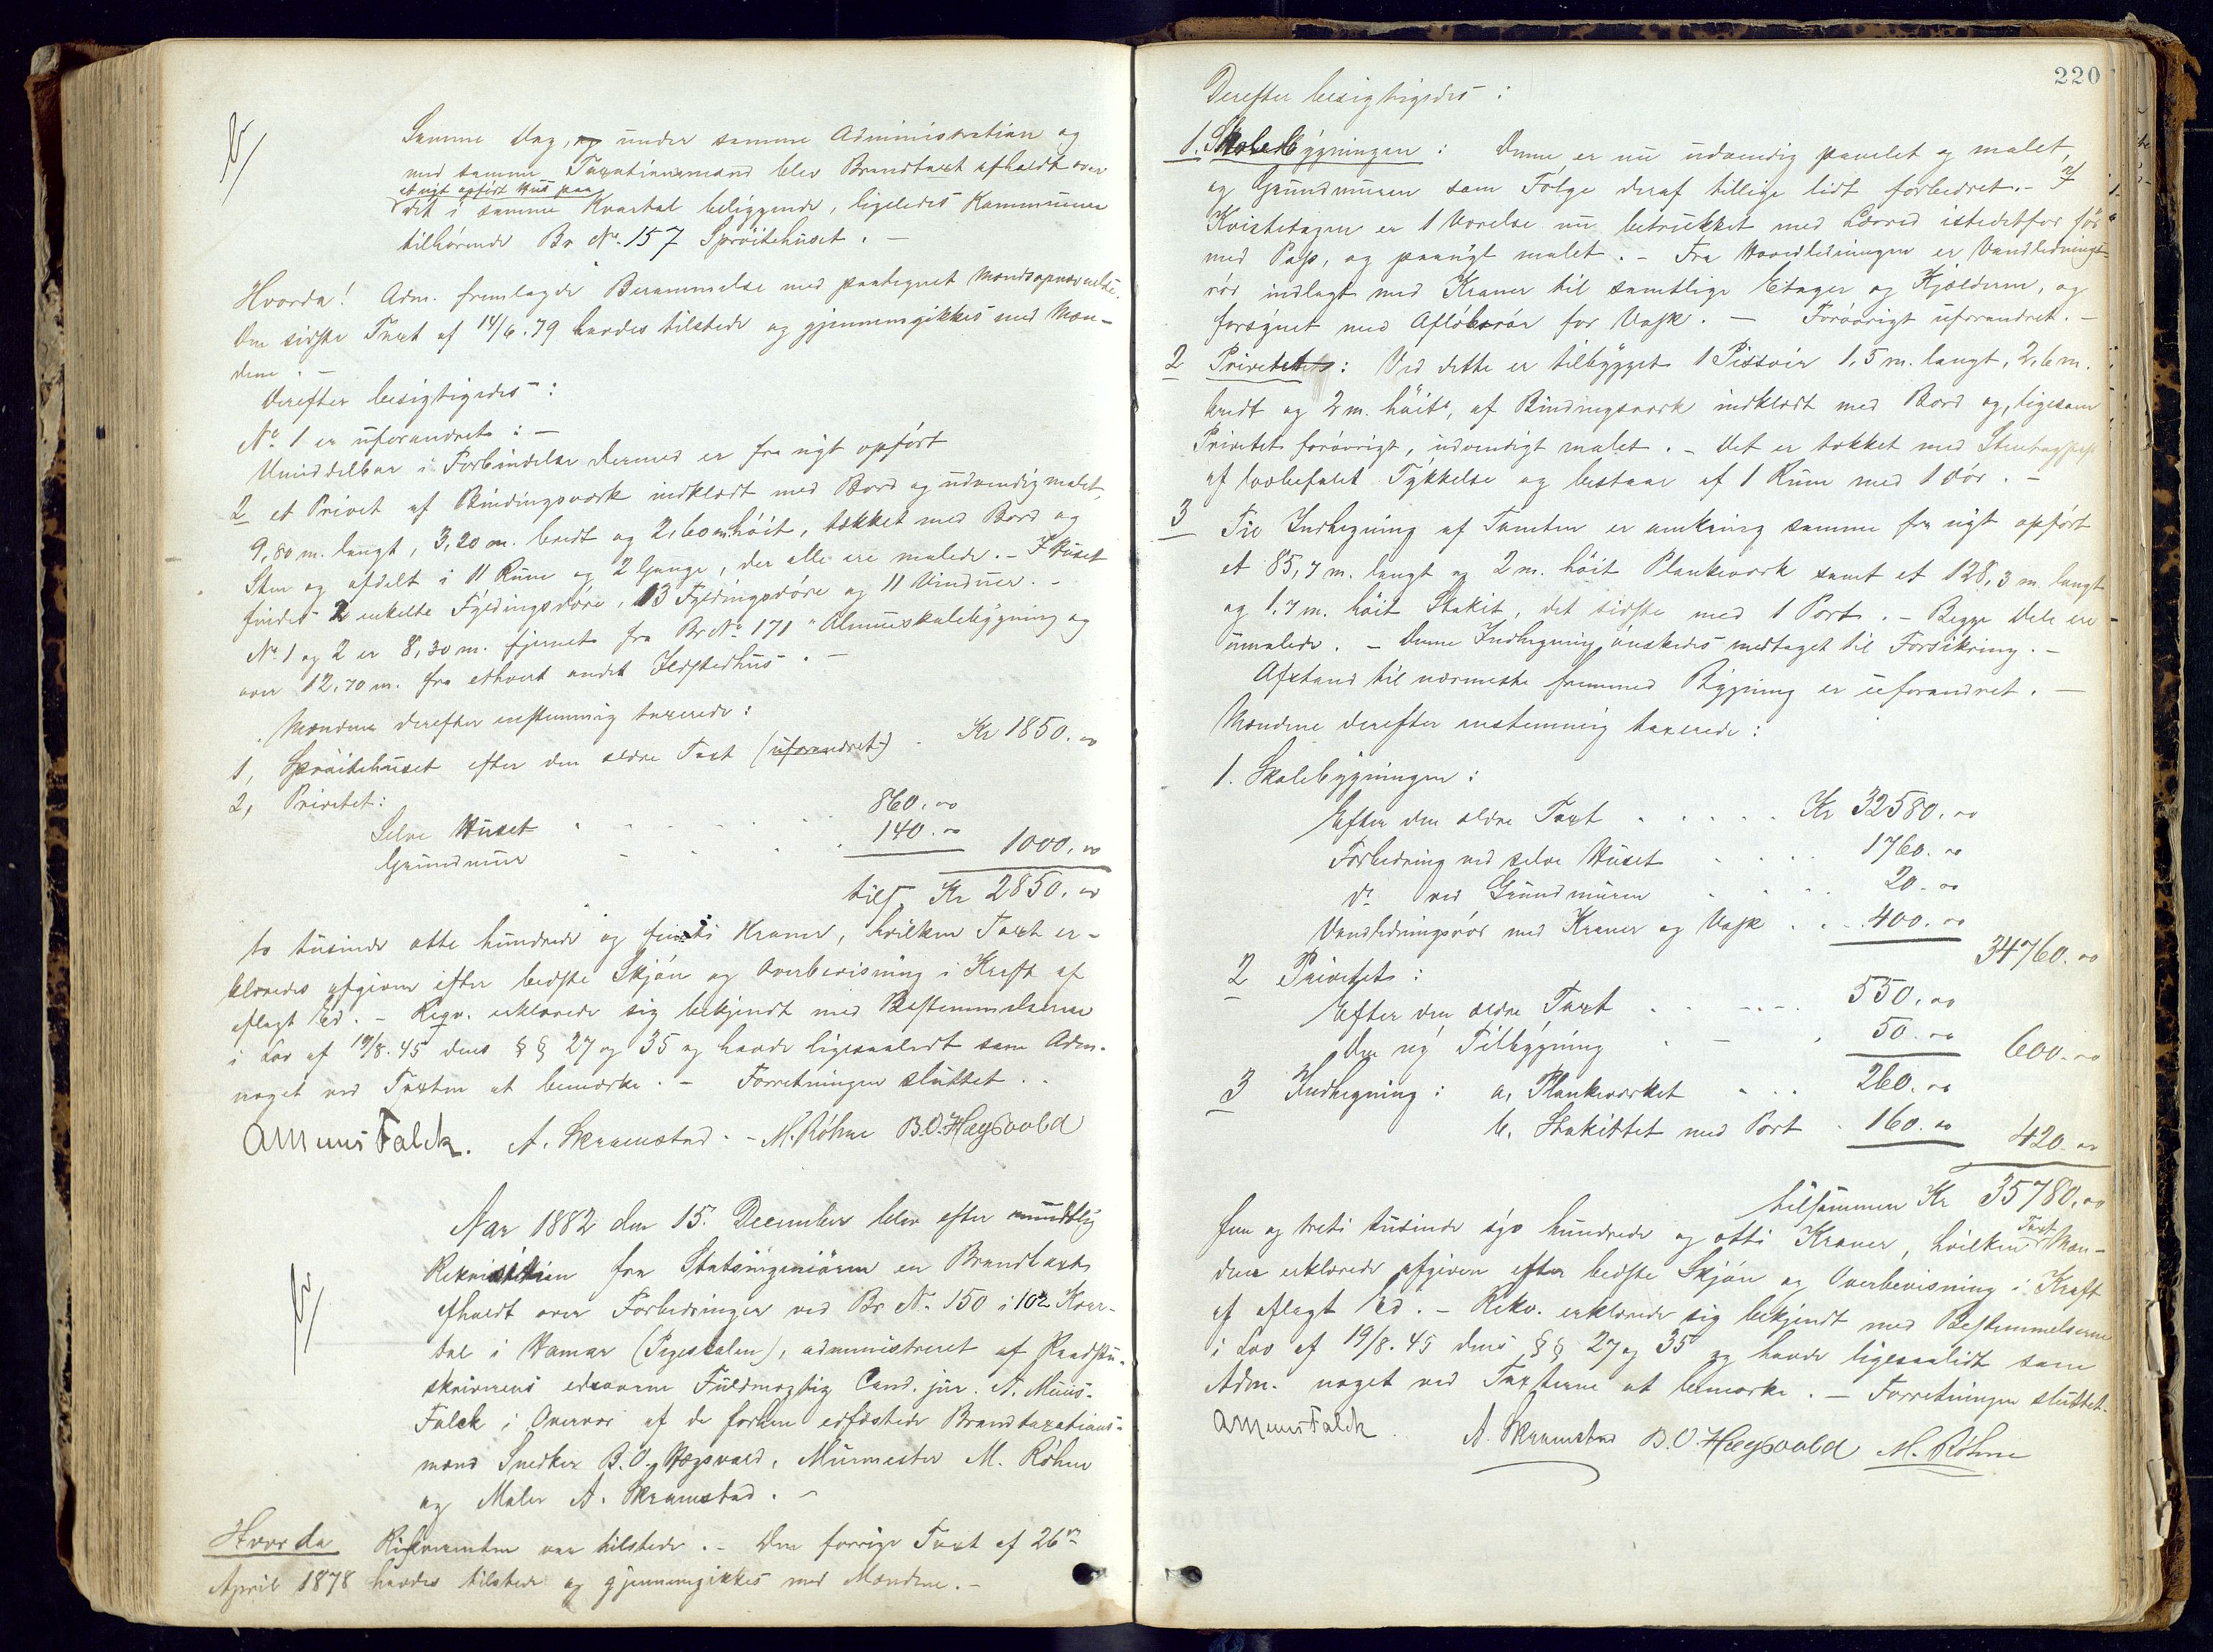 Samme Dag, og under samme Administration og
med samme Taxationsmænd blev Brandtaxt afholdt over
et nyt opført Hus paa
det i samme Kvartal beliggende, ligeledes Kommunen
tilhørende Br. No. 157 Sprøitehuset. –
Hvorda! Adm. fremlagde Berammelse med paategnet Mandsopnævnelse.
Den sidste Taxt af 14/6. 79 havdes tilstede og gjennemgikkes med Mæn-
dene. –
Derefter besigtigedes:
No. 1 er uforandret: –
Umiddelbar i Forbindelse dermed er fra nyt opført
2 et Privet af Bindingsværk indklædt med Bord og udvendig malet,
9,80 m. langt, 3,20 m. bredt og 2,60 m. høit, tækket med Bord og
Sten og afdelt i 11 Rum og 2 Gange, der alle ere malede. – I Huset
findes 2 enkelte Fyldingsdøre, 13 Fyldingsdøre og 11 Vinduer. –
No. 1 og 2 er 8,30 m. fjernet fra Br. No. 171 "Almueskolebygning og
over 12,70 m. fra ethvert andet Ildstedhus. –
Mændene derefter enstemmig taxerede:
1, Sprøitehuset efter den ældre Taxt (uforandret) . Kr 1850.00
2, Privetet:
Selve Huset . . . . 860.00
Grundmur . . . . 140.00 1000.00
tils. Kr 2850.00
to tusinde otte hundrede og femti Kroner, hvilken Taxt er-
klæredes afgiven efter bedste Skjøn og Overbevisning i Kraft af
aflagt Ed. – Reqv. erklærede sig bekjendt med Bestemmelserne
i Lov af 19/8. 45 dens §§ 27 og 35 og havde ligesaalidt som Adm.
noget ved Taxten at bemærke. – Forretningen sluttet. .
A Muus Falck. A. Skramstad. – M. Røhne B.O. Hægsvold
Aar 1882 den 15. December blev efter mundtlig
Rekvisition fra Statsingeniøren en Brandtaxt
afholdt over Forbedringer ved Br No. 150 i 102 Kvar-
tal i Hamar (Pigeskolen), administreret af Raadstu-
skriverens edsvorne Fuldmægtig Cand. jur. A. Muus-
Falck i Overvær af de forhen edfæstede Brandtaxations-
mænd Snedker B. O. Hægsvold, Murmester M. Røhne
og Maler A. Skramstad. –
Hvorda Rekvirenten var tilstede. – Den forrige Taxt af 26de
April 1878 havdes tilstede og gjennemgikkes med Mændene. –
220
Derefter besigtigedes:
1. Skolebygningen: Denne er nu udvendig panelet og malet,
og Grundmuren som Følge deraf tillige lidt forbedret. – I
Kvistetagen er 1 Værelse nu betrukket med Lærred istedetfor før
med Pap, og paanyt malet. – Fra Hovedledningen er Vandlednings-
rør indlagt med Kraner til samtlige Etager og Kjælderen, og
forsynet med Afløbsrør for Vask. – Forøvrigt uforandret. –
2 Privetet: Ved dette er tilbygget 1 Pissoir 1,5 m. langt, 2,6 m.
bredt og 2 m. høit, af Bindingsværk indklædt med Bord og, ligesom
Privetet forøvrigt, udvendigt malet. – Det er tækket med Stentagpap
af lovbefalet Tykkelse og bestaar af 1 Rum med 1 Dør. –
3 Til Indhegning af Tomten er omkring samme fra nyt opført
et 85,7 m. langt og 2 m. høit Plankeværk samt et 128,3 m. langt
og 1,7 m. høit Stakit, det sidste med 1 Port. – Begge Dele ere
umalede. – Denne Indhegning ønskedes medtaget til Forsikring. –
Afstand til nærmeste fremmed Bygning er uforandret. –
Mændene derefter enstemmig taxerede:
1. Skolebygningen:
Efter den ældre Taxt . . . . . Kr 32580.00
Forbedring ved selve Huset . . . . 1760.00
do ved Grundmuren . . . . 20.00
Vandledningsrør med Kraner og Vask . . 400.00
34760.00
2 Privetet:
Efter den ældre Taxt . . . . 550.00
Den ny Tilbygning . – . 50.00 600.00
3 Indhegning: a, Plankeværket . . . 260.00
b. Stakittet med Port . 160.00 420.00
tilsammen Kr 35780.00
fem og treti tusinde syv hundrede og otti Kroner, hvilken Taxt Mæn-
dene erklærede afgiven efter bedste Skjøn og Overbevisning i Kraft
af aflagt Ed. – Rekv. erklærede sig bekjendt med Bestemmelserne
i Lov af 19/8. 45 dens §§ 27 og 35 og havde ligesaalidt som
Adm. noget ved Taxterne at bemærke. – Forretningen sluttet.
A Muus Falck. A. Skramstad B.O. Hægsvold M. Røhne